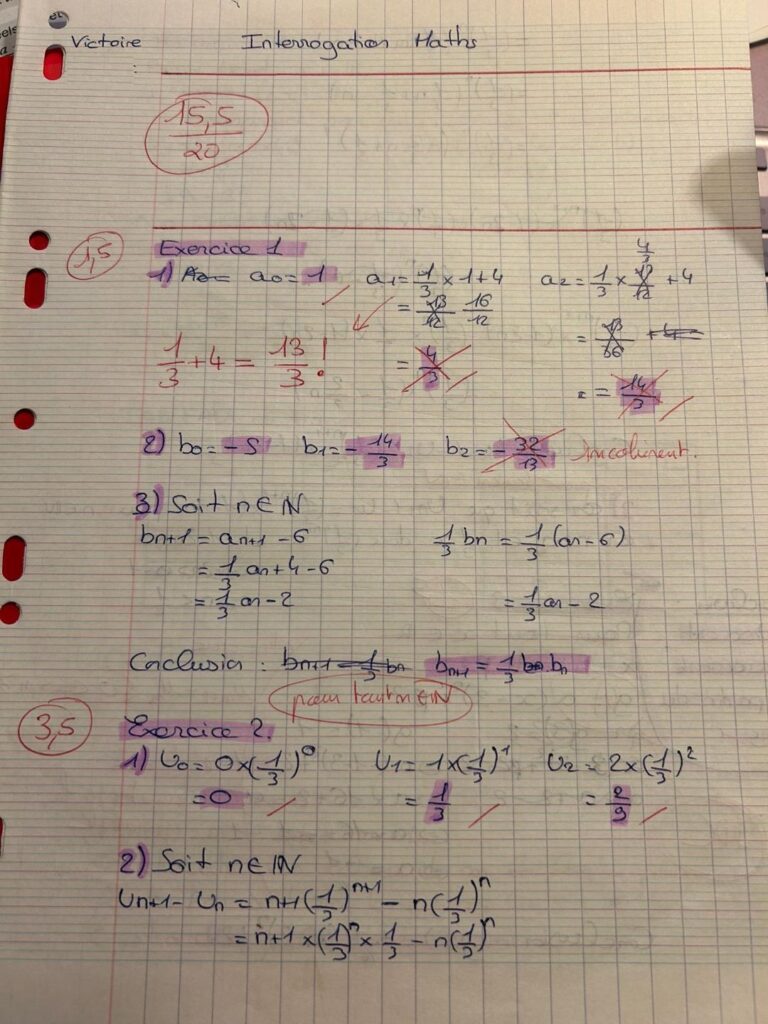 Victoire Interrogation Maths
15,5/20
1,5
Exercice 1
1) a0 = 1 a1 = 1/3 × 1 + 4 a2 = 1/3 × 4/3 + 4
= 13/12 16/12 = 13/36
1/3 + 4 = 13/3 ! = 4/3 = 14/3
2) b0 = -5 b1 = -14/3 b2 = -32/13 incohérent.
3) Soit n ∈ IN
bn+1 = an+1 - 6 1/3 bn = 1/3 (an - 6)
= 1/3 an + 4 - 6
= 1/3 an - 2 = 1/3 an - 2
Conclusion : bn+1 = 1/3 bn bn+1 = 1/3 bn
pour tout n ∈ IN
3,5
Exercice 2.
1) U0 = 0×(1/3)^0 U1 = 1×(1/3)^1 U2 = 2×(1/3)^2
= 0 = 1/3 = 2/9
2) Soit n ∈ IN
Un+1 - Un = n+1(1/3)^n+1 - n(1/3)^n
= n+1 × (1/3)^n × 1/3 - n(1/3)^n